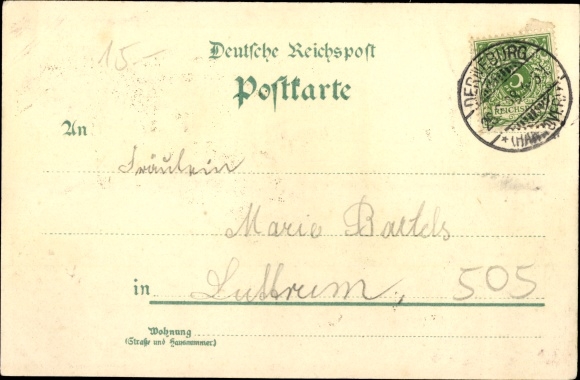 15.-
Deutsche Reichspost
Postkarte
DERNEBURG
5
REICHSPOST
*(HANNOVER)*
An
Fräulein
Marie Bartels
in Luttrum, 505
Wohnung
(Straße und Hausnummer)